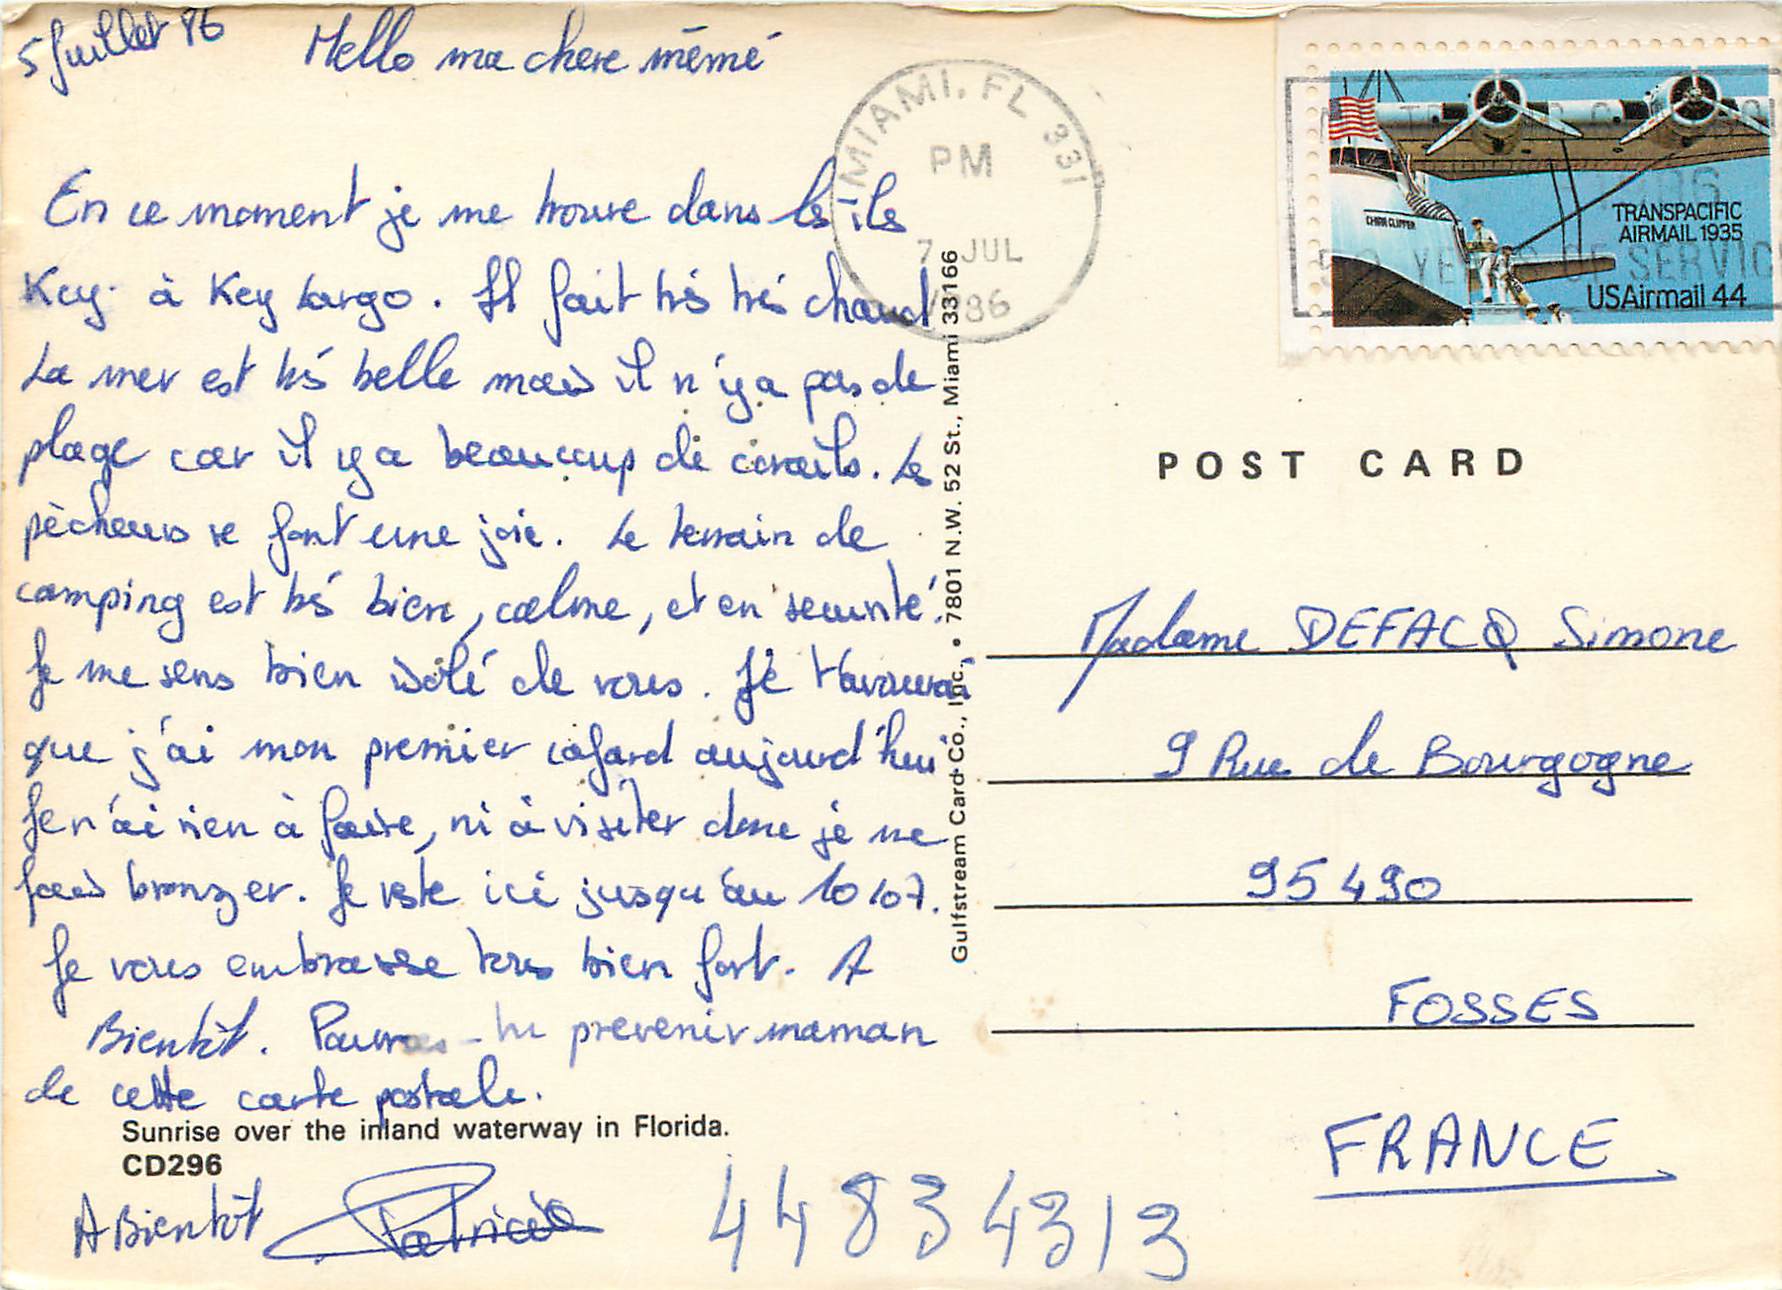 5 Juillet 86
Hello ma chere mémé
En ce moment je me trouve dans les îles
Key à Key Largo. Il fait très très chaud
La mer est très belle mais il n'y a pas de
plage car il y a beaucoup de corails. Les
pècheurs se font une joie. Le terrain de
camping est très bien, calme, et en securité.
Je me sens bien isolé de vous. Je t'avouerai
que j'ai mon premier cafard aujourd'hui
Je n'ai rien à faire, ni à visiter donc je me
fais bronzer. Je reste ici jusqu'au 10/07.
Je vous embrasse tous bien fort. A
Bientôt. Pourras-tu prevenir maman
de cette carte postale.
Sunrise over the inland waterway in Florida.
CD296
A Bientôt Patricia
44834313
Gulfstream Card Co., Inc., • 7801 N.W. 52 St., Miami 33166
MIAMI, FL 331
PM
7 JUL
1986
CHINA CLIPPER
TRANSPACIFIC
AIRMAIL 1935
USAirmail 44
50 YEARS OF SERVICE
POST CARD
Madame DEFACQ Simone
9 Rue de Bourgogne
95490
FOSSES
FRANCE